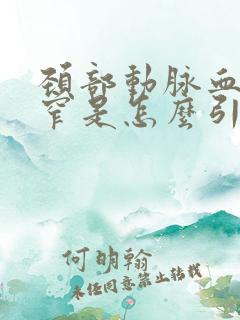 頚部動脉血
窄是怎麼引
何明翰
未经同意禁止转载